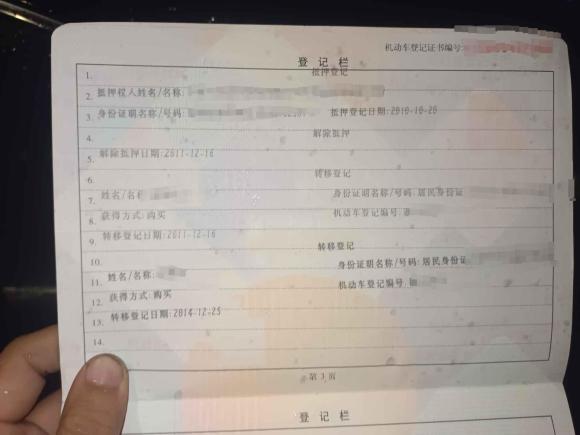 机动车登记证书编号:
登记栏
1. 抵押登记
2. 抵押权人姓名/名称:
3. 身份证明名称/号码: 抵押登记日期:2010-10-20
4. 解除抵押
5. 解除抵押日期:2011-12-16
6. 转移登记
7. 姓名/名称 身份证明名称/号码:居民身份证
8. 获得方式:购买 机动车登记编号:
9. 转移登记日期:2011-12-16
10. 转移登记
11. 姓名/名称: 身份证明名称/号码:居民身份证
12. 获得方式:购买 机动车登记编号
13. 转移登记日期:2014-12-25
14.
第3页
登记栏